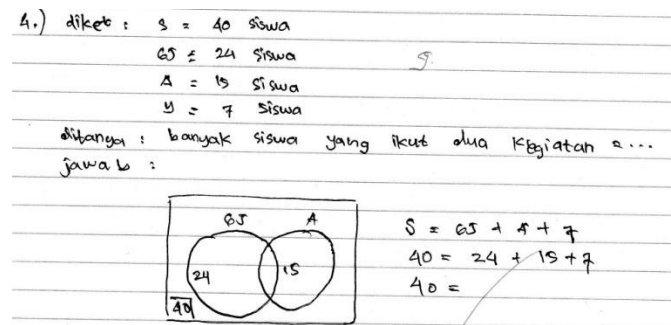 4.) diket : S = 40 siswa
GJ = 24 siswa
A = 15 siswa
y = 7 siswa
ditanya : banyak siswa yang ikut dua kegiatan = ...
jawab :
GJ A
24 15
40
S = GJ + A + 7
40 = 24 + 15 + 7
40 =